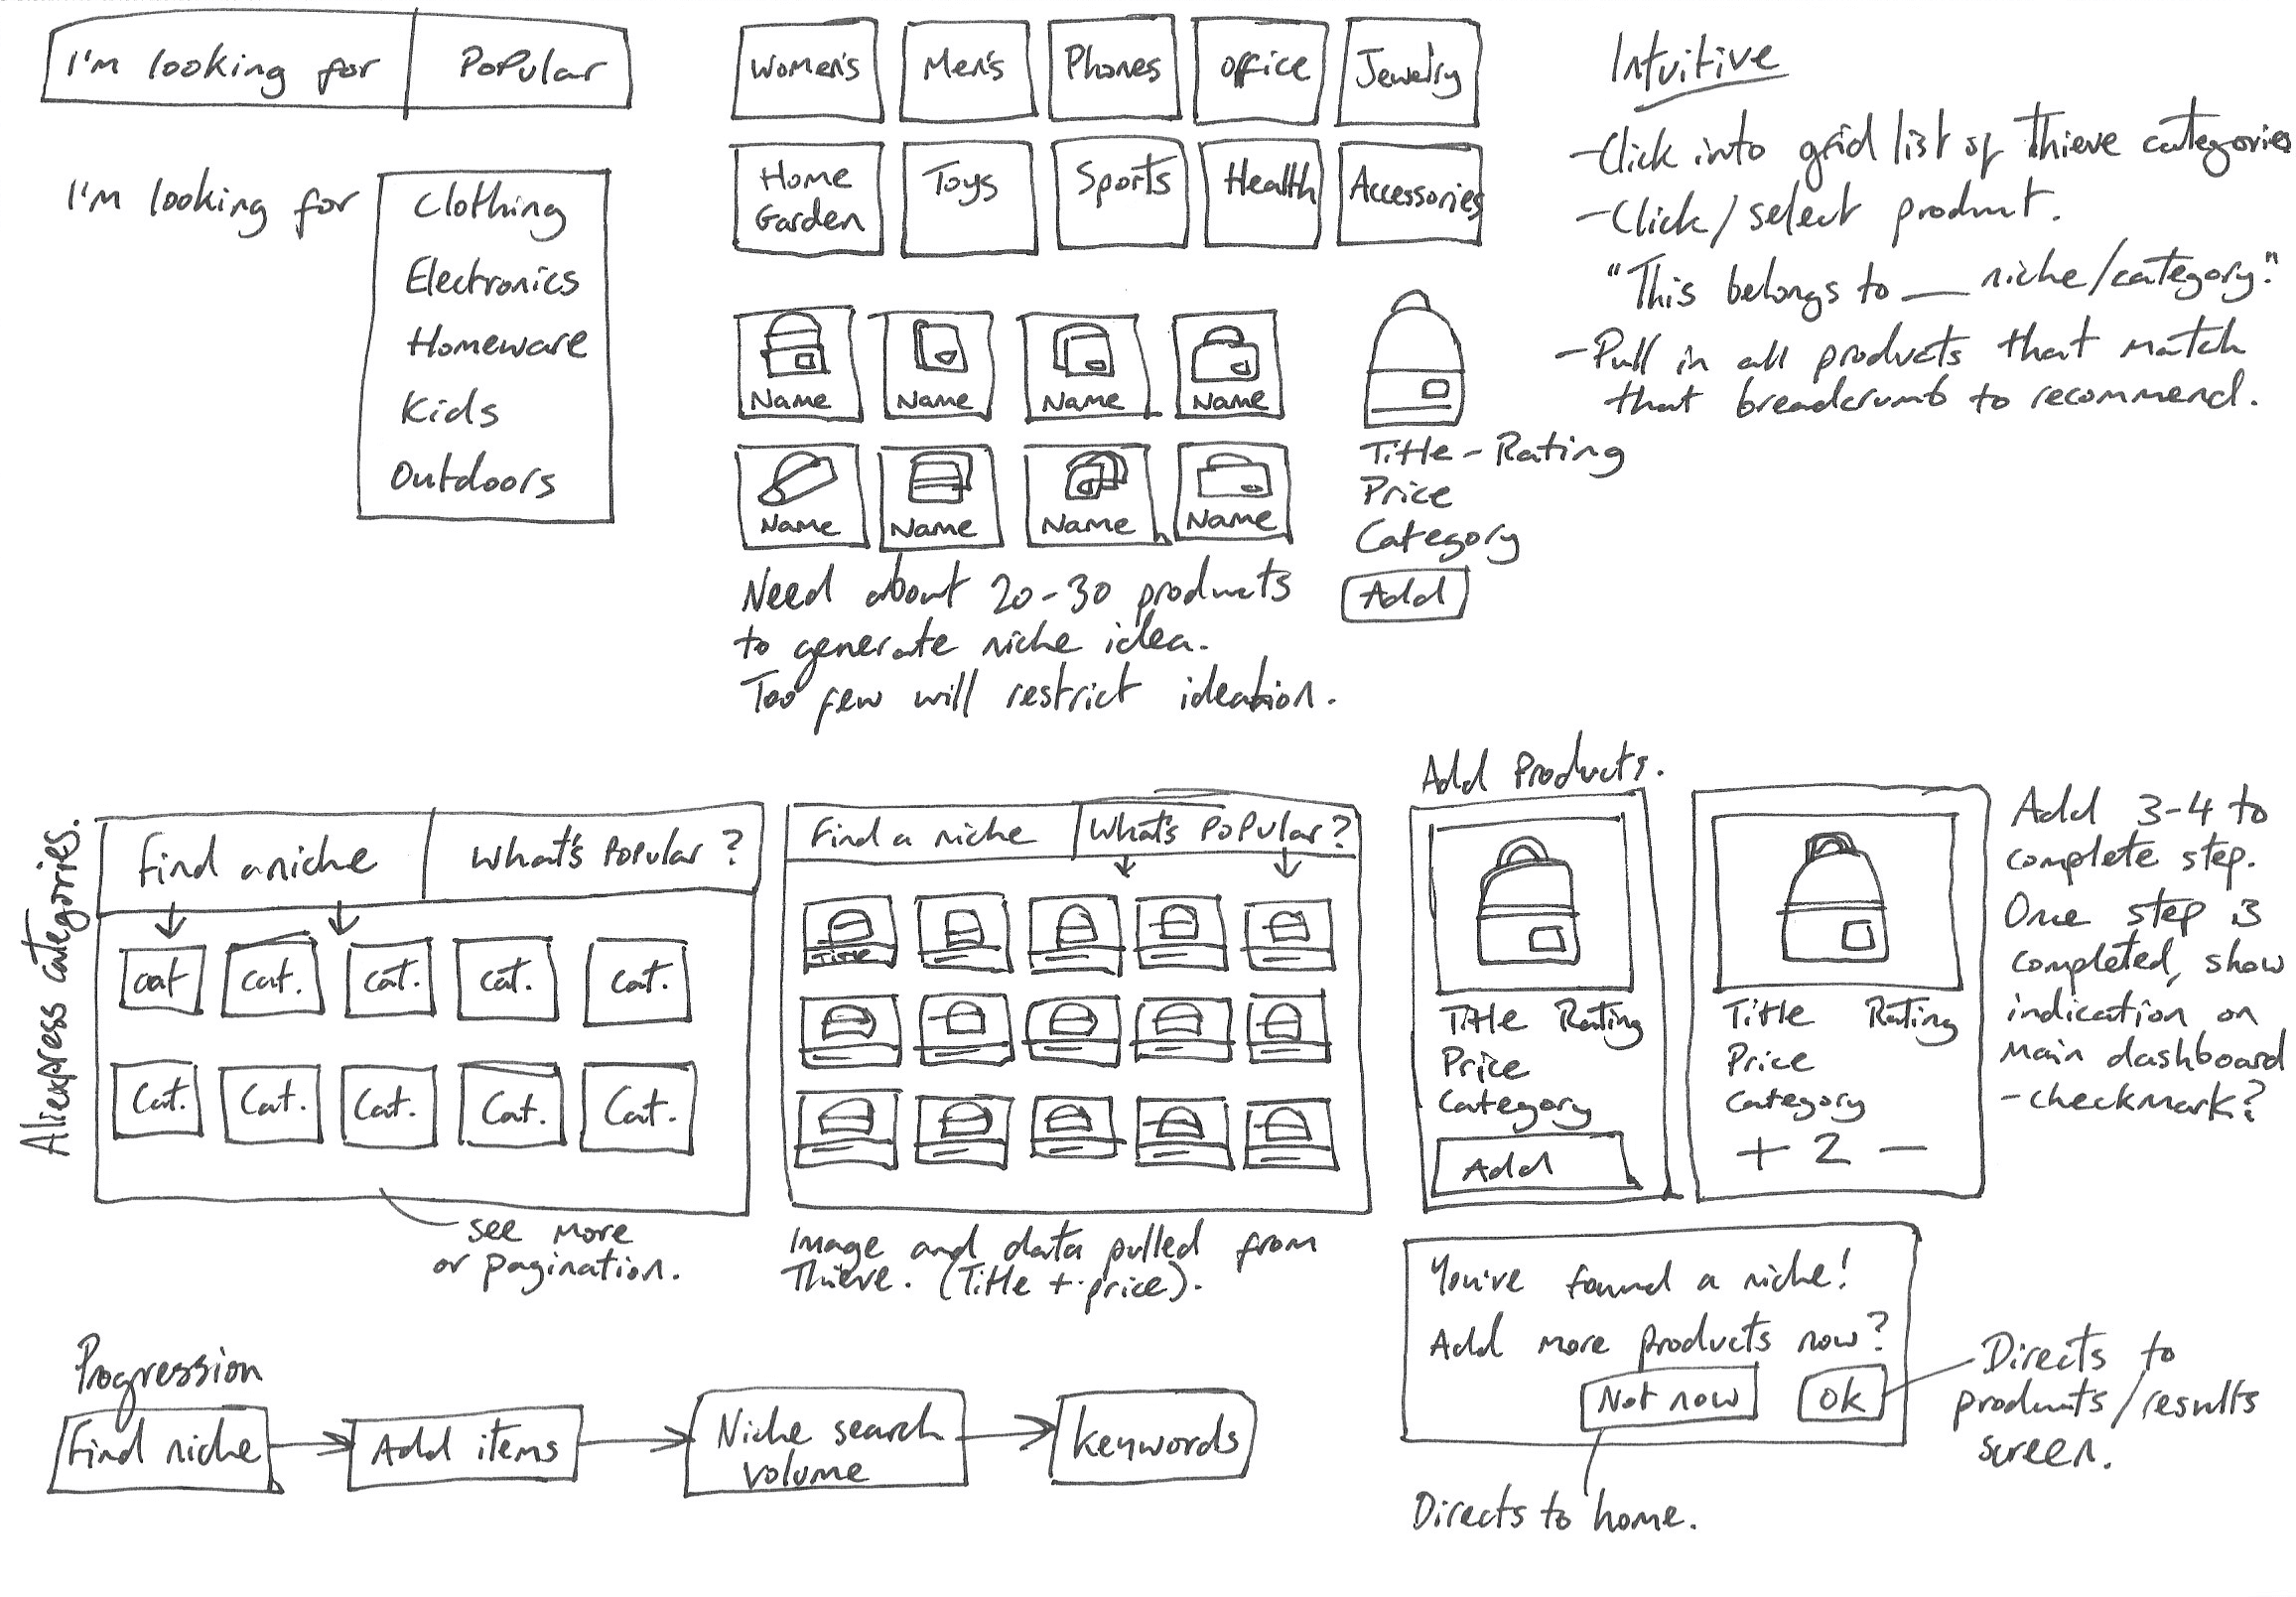 I'm looking for
Popular
I'm looking for
Clothing
Electronics
Homeware
Kids
Outdoors
Women's
Men's
Phones
Office
Jewelry
Home
Garden
Toys
Sports
Health
Accessories
Name
Name
Name
Name
Name
Name
Name
Name
Need about 20-30 products
to generate niche idea.
Too few will restrict ideation.
Title - Rating
Price
Category
Add
Intuitive
- Click into grid list of Thieve categories
- Click/select product.
"This belongs to __ niche/category."
- Pull in all products that match
that breadcrumb to recommend.
Aliexpress categories.
Find a niche
What's Popular?
cat
cat.
cat.
cat.
cat.
Cat.
Cat.
Cat.
Cat.
Cat.
see more
or pagination.
Find a niche
What's Popular?
Title
Image and data pulled from
Thieve. (Title + price).
Add Products.
Title Rating
Price
Category
Add
Title Rating
Price
Category
+ 2 -
Add 3-4 to
complete step.
One step is
completed, show
indication on
main dashboard
- checkmark?
You've found a niche!
Add more products now?
Not now
Ok
Directs to
products/results
screen.
Directs to home.
Progression
Find niche
Add items
Niche search
volume
Keywords